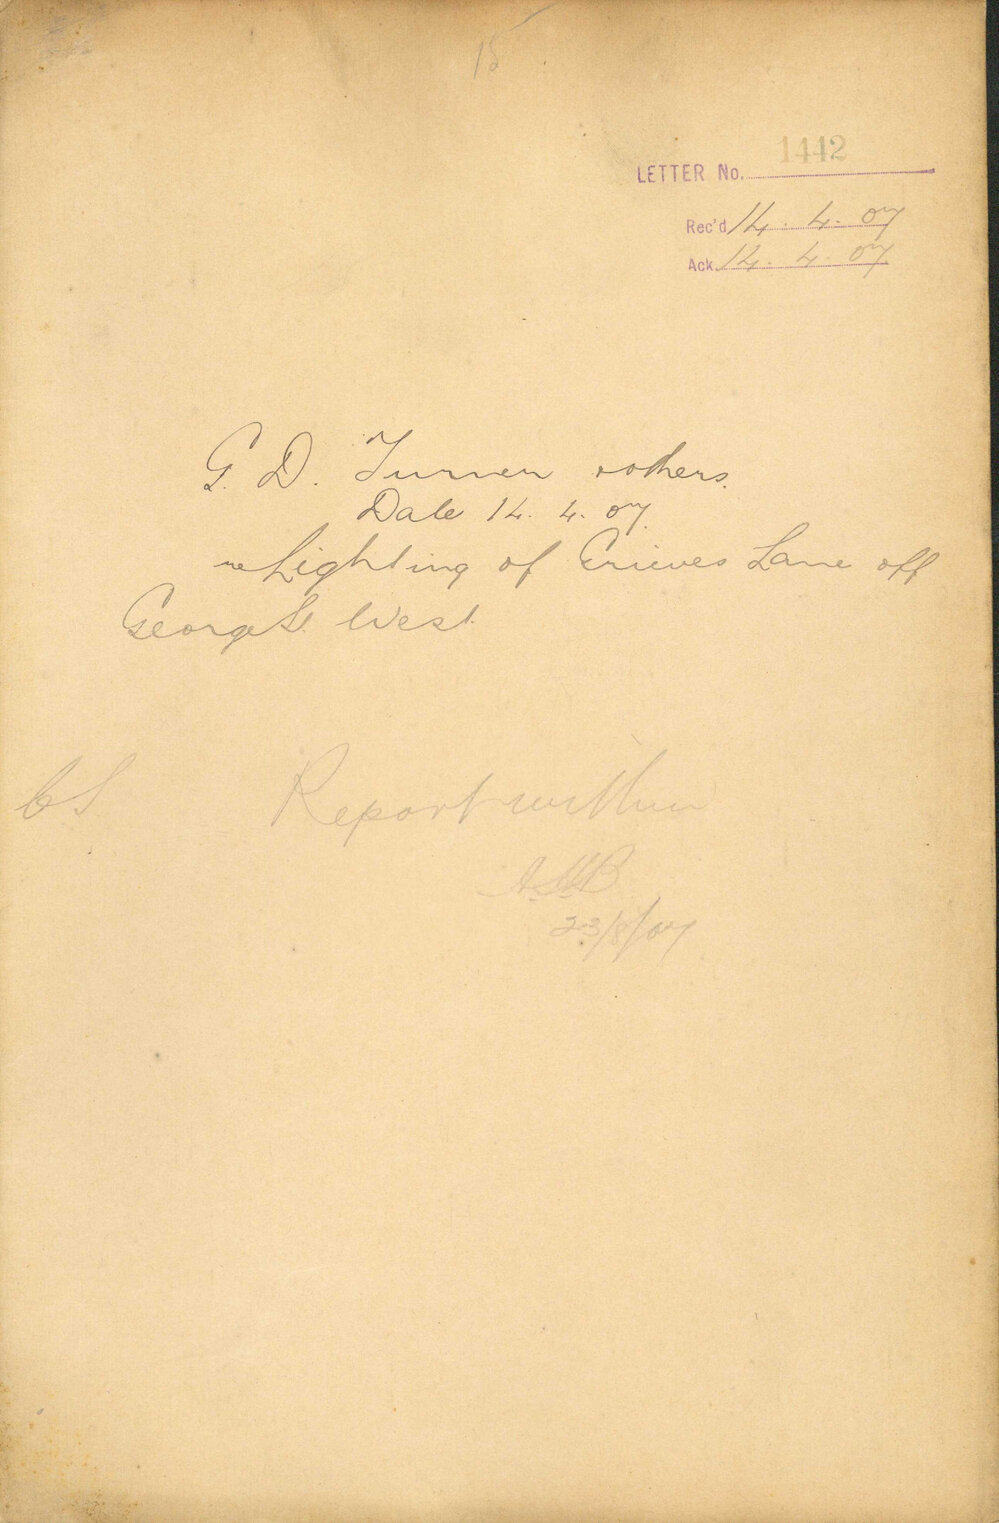 15
LETTER No. 1442
Rec'd 14. 4. 07
Ack. 14. 4. 07
G. D. Turner & others.
Date 14. 4. 07.
re Lighting of Grieves Lane off
George St. West.
CS Report within
23/8/07